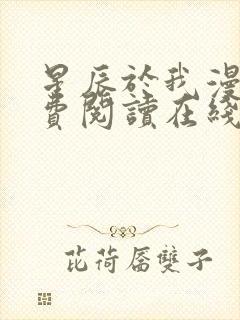 星辰於我漫
費閱讀在綫
芘荷屠雙子